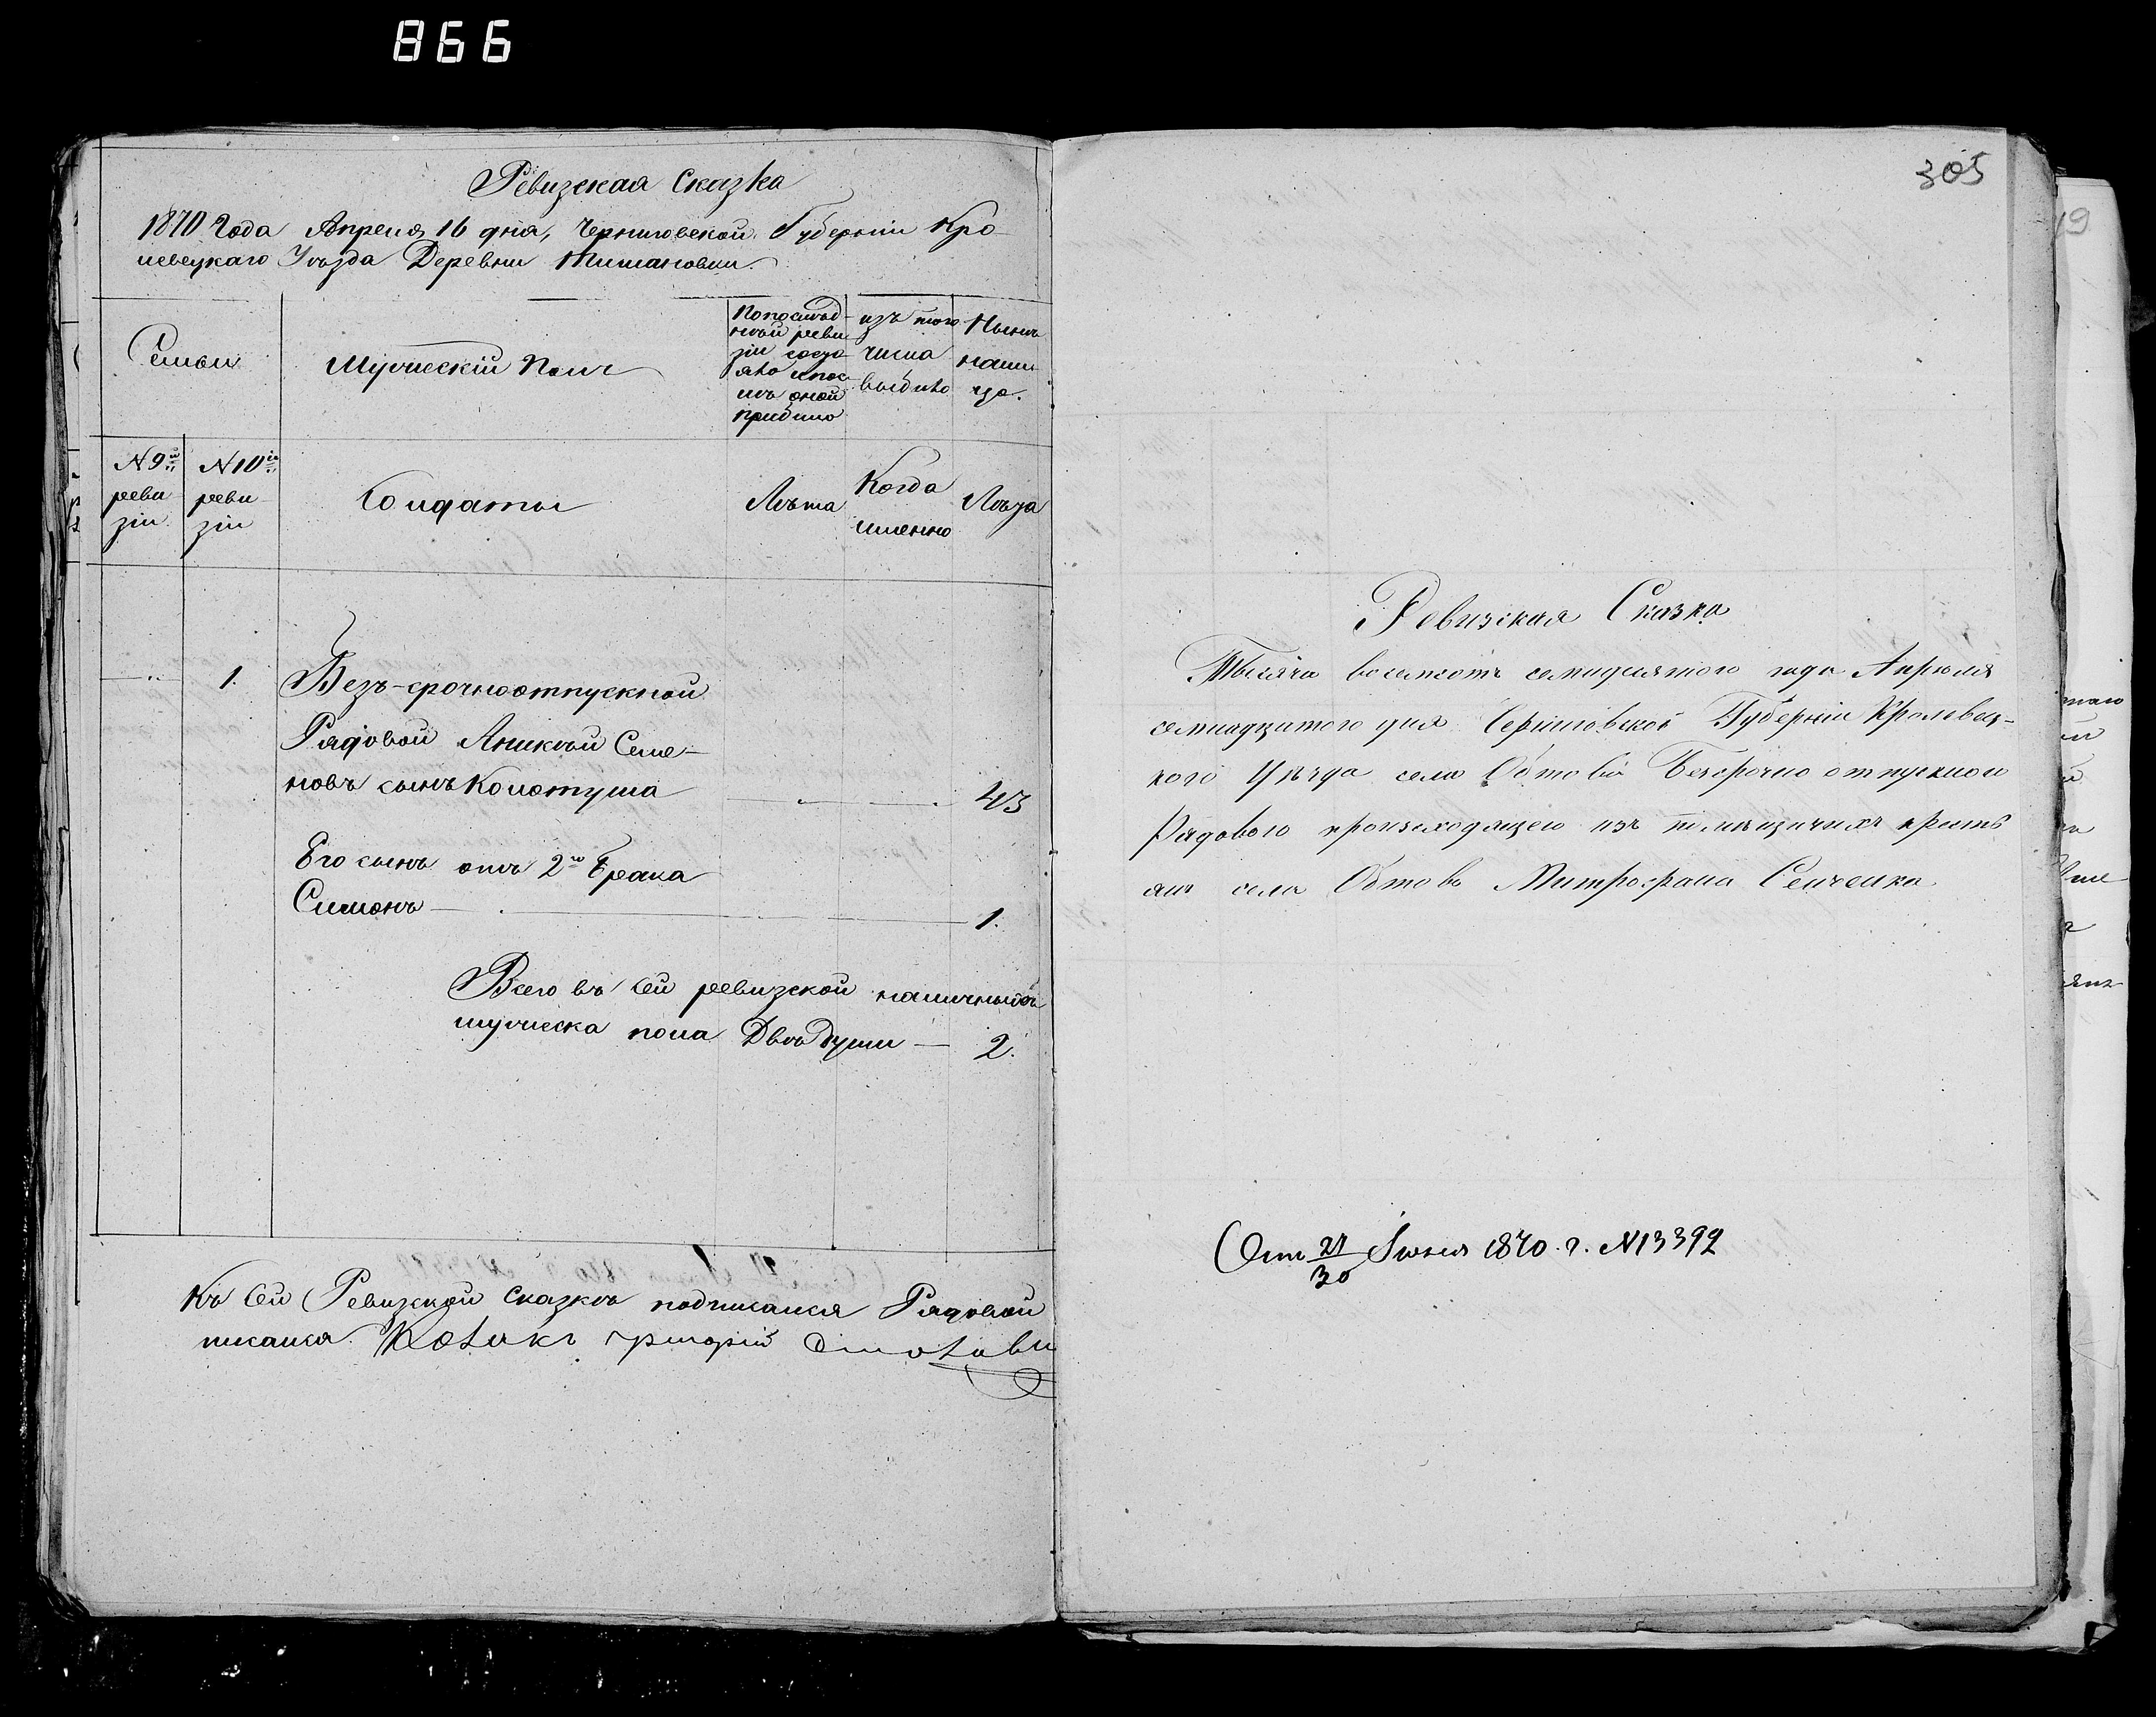 866
Ревизская Сказка
1870 Года Апреля 16 дня, Черниговской Губернии Кро
левецкаго Уѣзда Деревни
Семьи
Мужескій Полъ
По послѣд
ней реви
зіи состо
яло и пос
лѣ оной
прибыло
изъ того
числа
выбыло
Нынѣ
на лицо.
N 9й реви зіи
N 10й реви зіи
Солдаты
Лѣта
Когда именно
Лѣта
1.
Безъ-срочноотпускной
Рядовой Аникѣй Семе-
новъ сынъ Колотуша 43
Его сынъ отъ 2го брака
Симонъ 1.
Всего въ сей ревизской наличныхъ
мужеска пола Двѣ Души — 2.
Къ сей Ревизской Сказкѣ подписался Рядовой
писался
305
Ревизская Сказка
Тысяча восемсотъ семидесятого года Апрѣля
семнадцатого дня Черниговской Губерніи Кролевец-
кого Уѣзда села Обтовъ Безсрочно отпускнои
Рядового происходящего изъ помѣщичихъ крестѣ
янъ села Обтовъ Митрофана Сенченка
От 21/30 Іюня 1870. г. N 13392